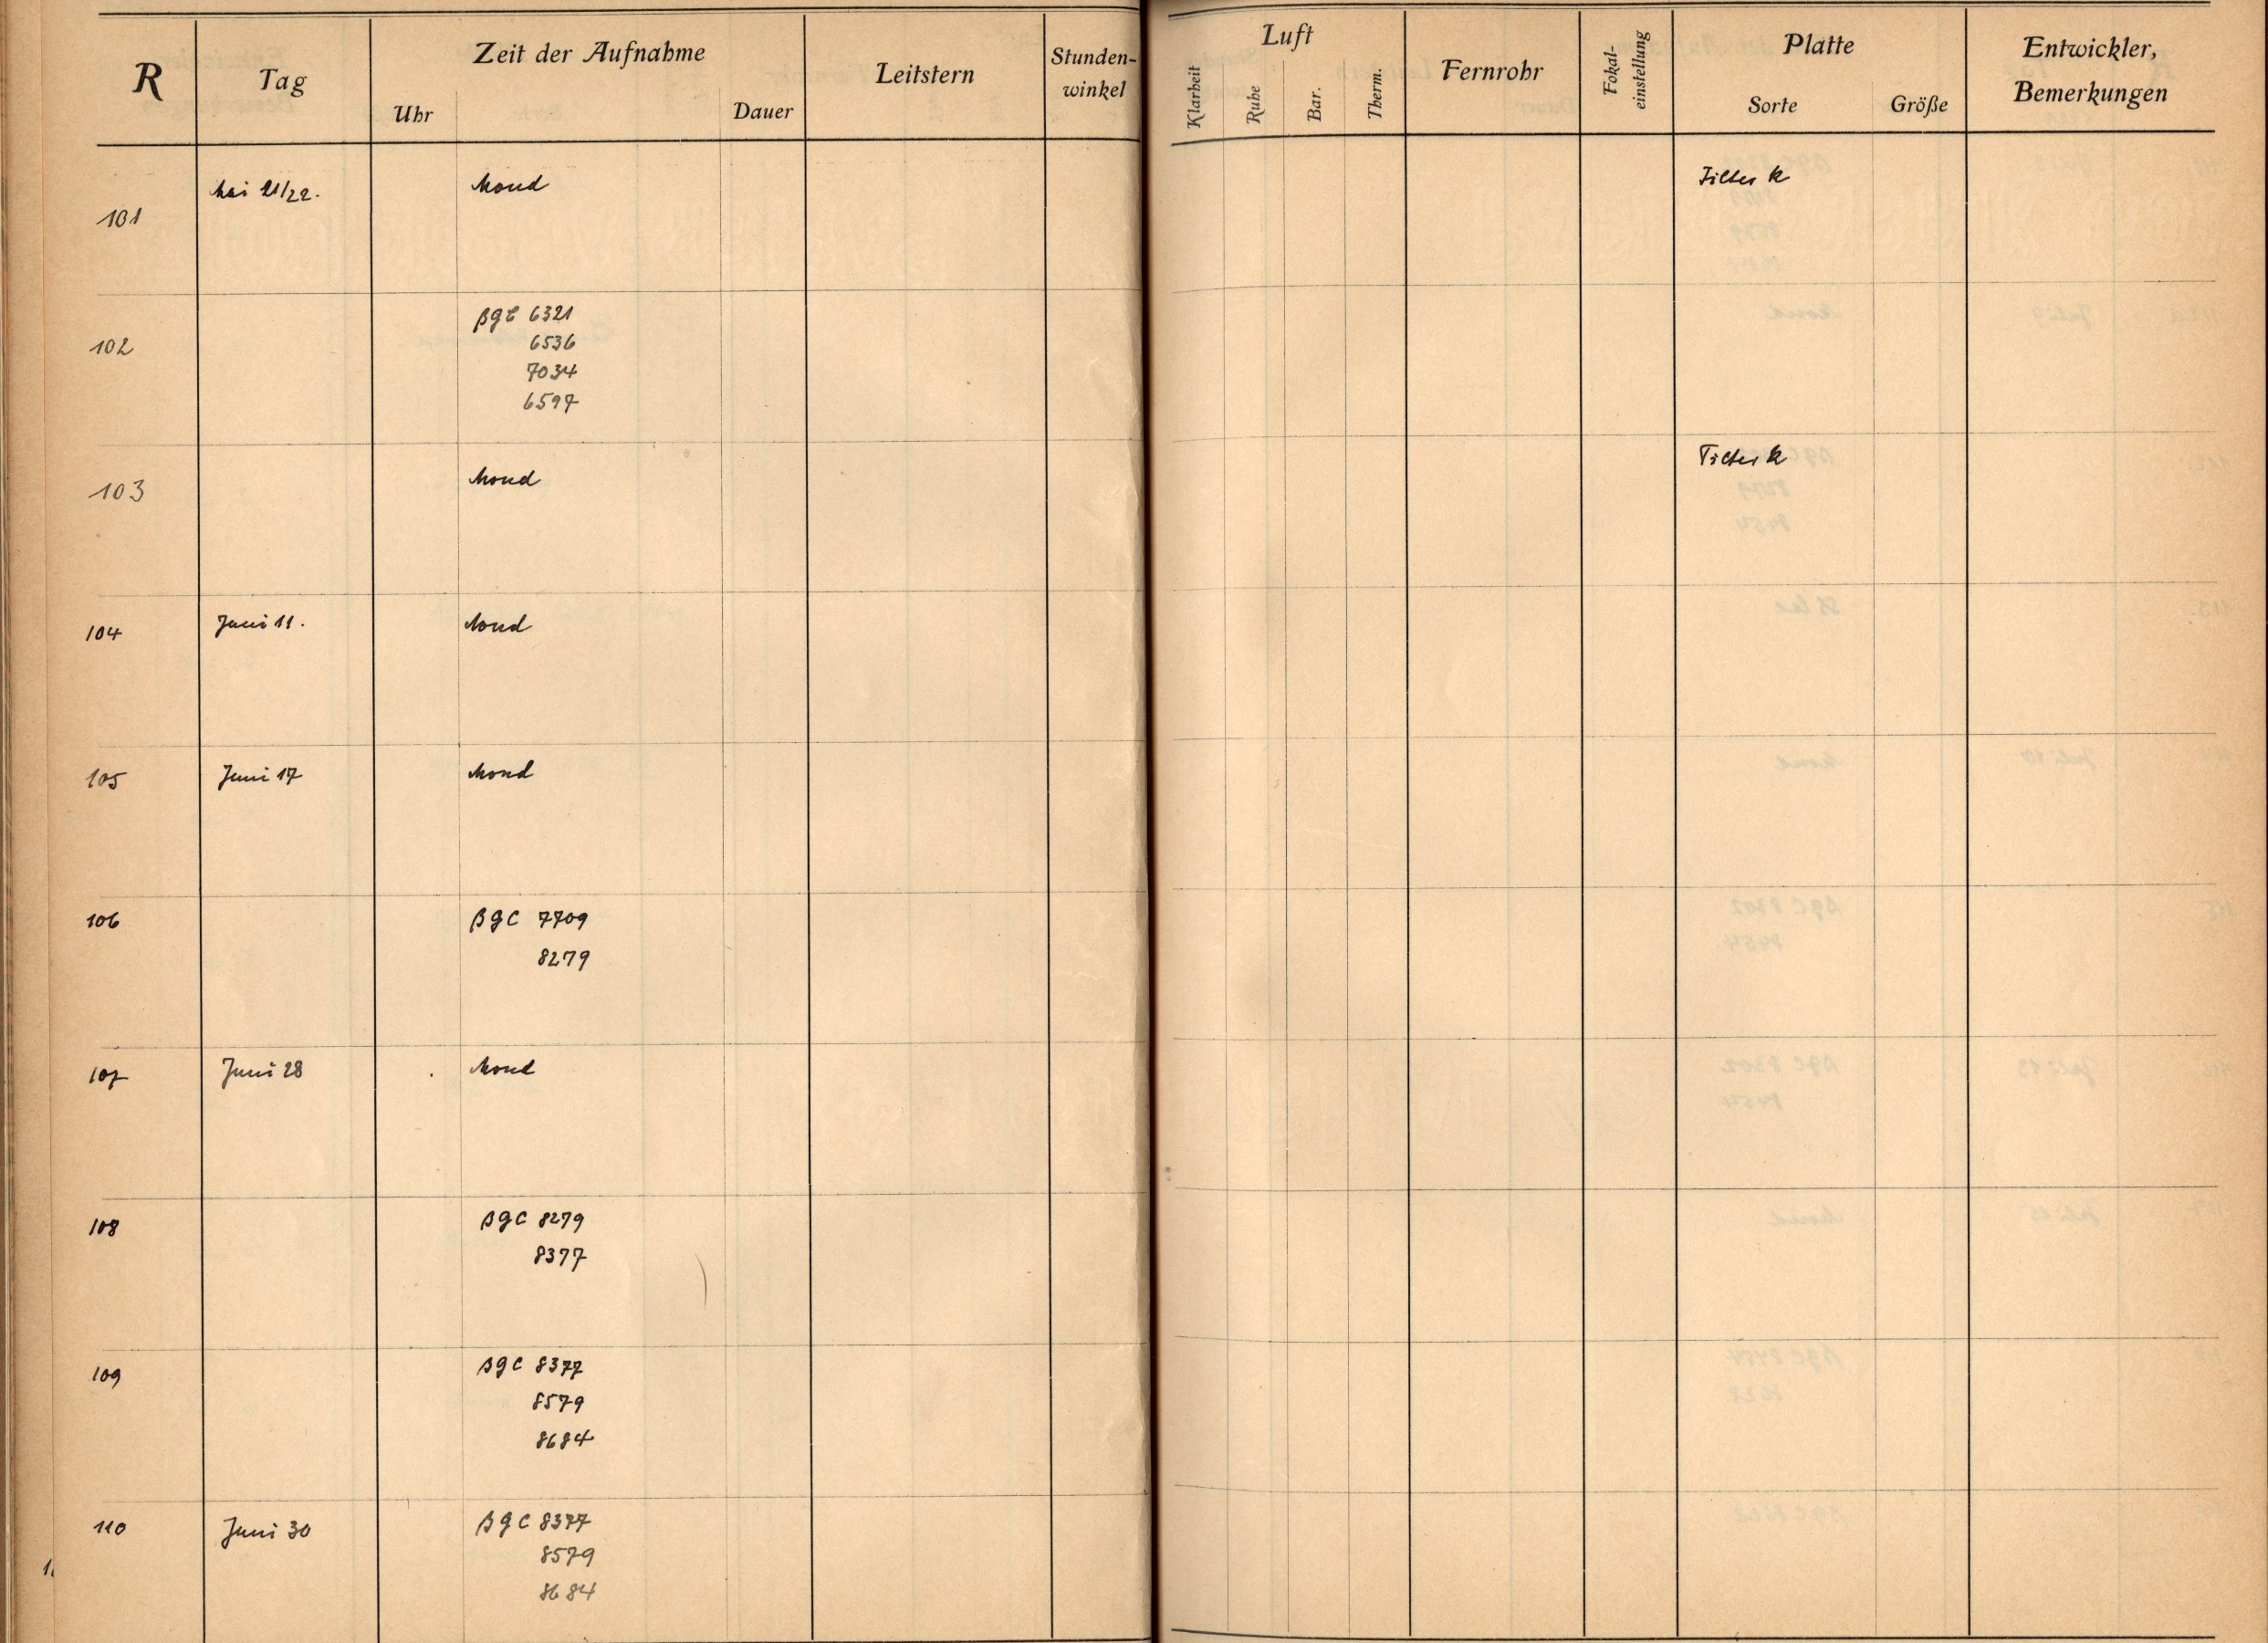 R Tag Zeit der Aufnahme Leitstern Stunden-winkel Luft Fernrohr Fokal-einstellung Platte Entwickler, Bemerkungen
Uhr Dauer Klarheit Ruhe Bar. Therm. Sorte Größe
101 Mai 21/22. Mond Filter k
102 βgC 6321
6536
7034
6597
103 Mond Filter k
104 Juni 11. Mond
105 Juni 17 Mond
106 βgC 7709
8279
107 Juni 28 Mond
108 βgC 8279
8377
109 βgC 8377
8579
8684
110 Juni 30 βgC 8377
8579
8684